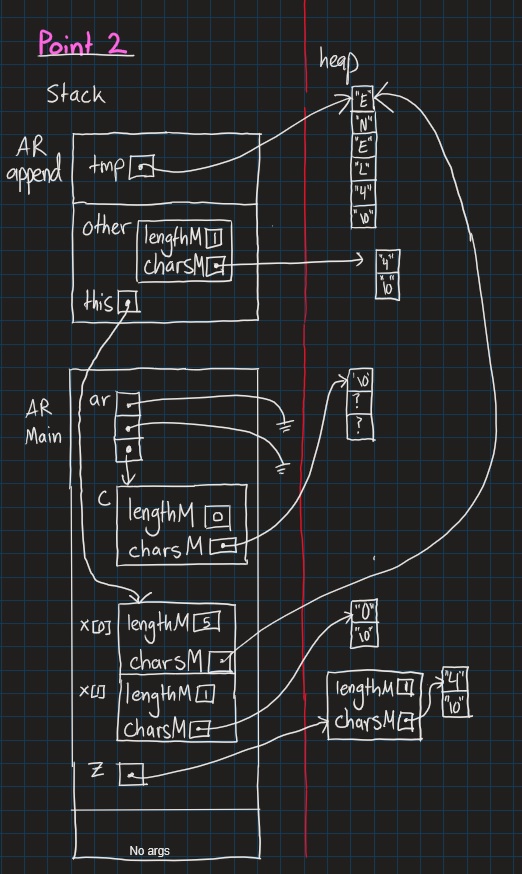 Point 2
Stack
heap
AR
append
tmp
"E"
"N"
"E"
"L"
"4"
"\0"
other
lengthM 1
charsM
"4"
"\0"
this
AR
Main
ar
'\0'
?
?
C
lengthM 0
charsM
x[0]
lengthM 5
charsM
"0"
"\0"
x[1]
lengthM 1
charsM
lengthM 1
charsM
"4"
"\0"
Z
No args